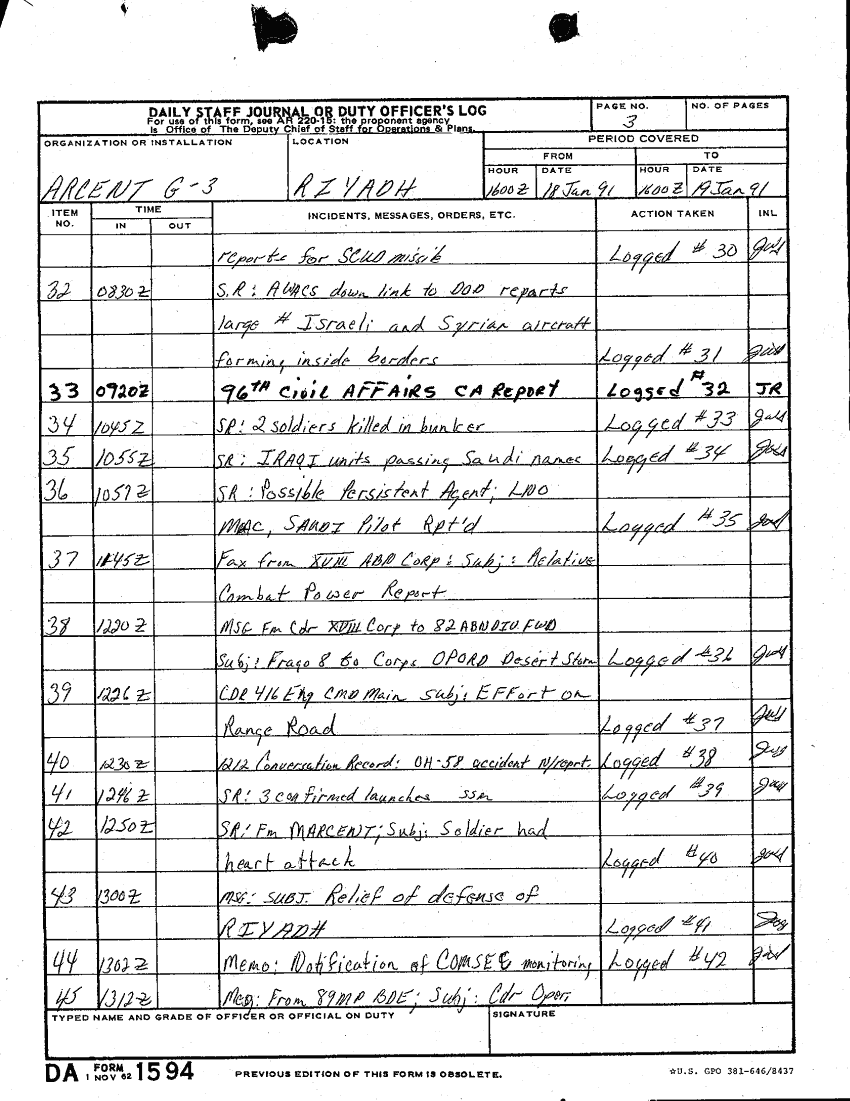 DAILY STAFF JOURNAL OR DUTY OFFICER'S LOG
For use of this form, see AR 220-15: the proponent agency
is Office of The Deputy Chief of Staff for Operations & Plans.
PAGE NO. 3
NO. OF PAGES
ORGANIZATION OR INSTALLATION
ARCENT G-3
LOCATION
RIYADH
PERIOD COVERED
FROM TO
HOUR DATE HOUR DATE
1600Z 18 Jan 91 1600Z 19 Jan 91
ITEM NO. TIME IN OUT INCIDENTS, MESSAGES, ORDERS, ETC. ACTION TAKEN INL
reports for SCUD missile Logged # 30
32 0830Z S.R: AWACS down link to DOD reports
large # Israeli and Syrian aircraft
forming inside borders Logged # 31
33 0920Z 96TH Civil AFFAIRS CA REPORT Logged #32 JR
34 1045Z SR: 2 soldiers killed in bunker Logged #33
35 1055Z SR: IRAQI units passing Saudi names Logged #34
36 1057Z SR: Possible Persistent Agent; LNO
MAC, SAUDI Pilot Rpt'd Logged #35
37 1145Z Fax from XVIII ABN Corp: Subj: Relative
Combat Power Report
38 1220Z MSG Fm Cdr XVIII Corp to 82 ABNDIV FWD
Subj: Frago 8 to Corps OPORD Desert Storm Logged #36
39 1226Z CDR 416 Eng CMD Main subj: EFFort on
Range Road Logged #37
40 1230Z 1212 Conversation Record: OH-58 accident N/reprt. Logged #38
41 1246Z SR: 3 confirmed launches SSM Logged #39
42 1250Z SR: Fm MARCENT; Subj: Soldier had
heart attack Logged #40
43 1300Z MSG: SUBJ. Relief of defense of
RIYADH Logged #41
44 1302Z Memo: Notification of COMSEC monitoring Logged #42
45 1312Z Msg: From 89MP BDE; Subj: Cdr Oper.
TYPED NAME AND GRADE OF OFFICER OR OFFICIAL ON DUTY SIGNATURE
DA FORM 1 NOV 62 1594 PREVIOUS EDITION OF THIS FORM IS OBSOLETE. ☆U.S. GPO 381-646/8437